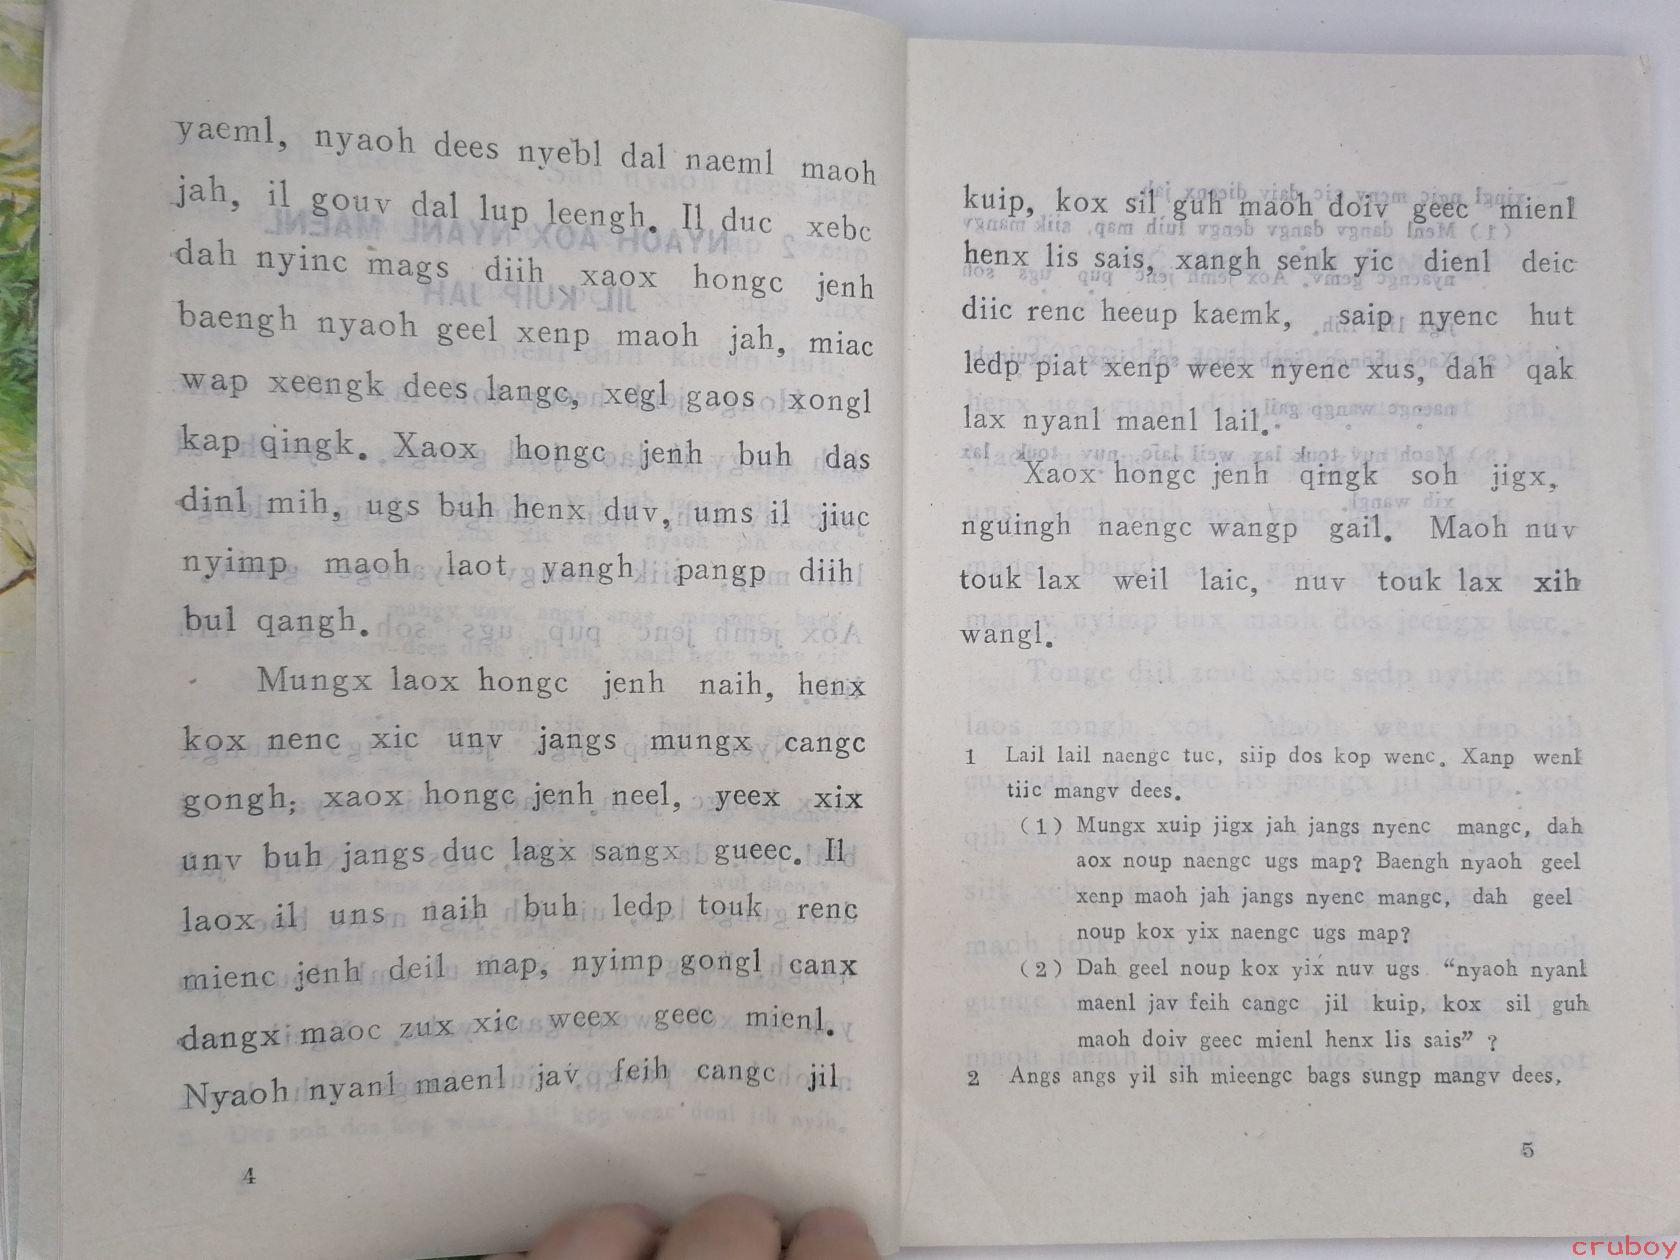 yaeml, nyaoh dees nyebl dal naeml maoh
jah, il gouv dal lup leengh. Il duc xebc
dah nyinc mags diih xaox hongc jenh
baengh nyaoh geel xenp maoh jah, miac
wap xeengk dees langc, xegl gaos xongl
kap qingk. Xaox hongc jenh buh das
dinl mih, ugs buh henx duv, ums il jiuc
nyimp maoh laot yangh pangp diih
bul qangh.
Mungx laox hongc jenh naih, henx
kox nenc xic unv jangs mungx cangc
gongh; xaox hongc jenh neel, yeex xix
unv buh jangs duc lagx sangx gueec. Il
laox il uns naih buh ledp touk renc
mienc jenh deil map, nyimp gongl canx
dangx maoc zux xic weex geec mienl.
Nyaoh nyanl maenl jav feih cangc jil
4
kuip, kox sil guh maoh doiv geec mienl
henx lis sais, xangh senk yic dienl deic
diic renc heeup kaemk, saip nyenc hut
ledp piat xenp weex nyenc xus, dah qak
lax nyanl maenl lail.
Xaox hongc jenh qingk soh jigx,
nguingh naengc wangp gail. Maoh nuv
touk lax weil laic, nuv touk lax xih
wangl.
1 Lail lail naengc tuc, siip dos kop wenc. Xanp wenl
tiic mangv dees.
(1) Mungx xuip jigx jah jangs nyenc mangc, dah
aox noup naengc ugs map? Baengh nyaoh geel
xenp maoh jah jangs nyenc mangc, dah geel
noup kox yix naengc ugs map?
(2) Dah geel noup kox yix nuv ugs “nyaoh nyanl
maenl jav feih cangc jil kuip, kox sil guh
maoh doiv geec mienl henx lis sais” ?
2 Angs angs yil sih mieengc bags sungp mangv dees,
5
cruboy